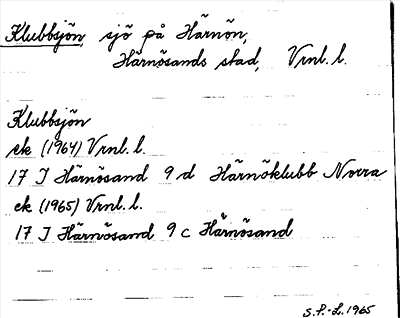 Klubbsjön, sjö på Härnön,
Härnösands stad, Vrnl. l.
Klubbsjön
ek (1964) Vrnl. l.
17 I Härnösand 9 d Härnöklubb Norra
ek (1965) Vrnl. l.
17 I Härnösand 9 c Härnösand
S.P.-L. 1965